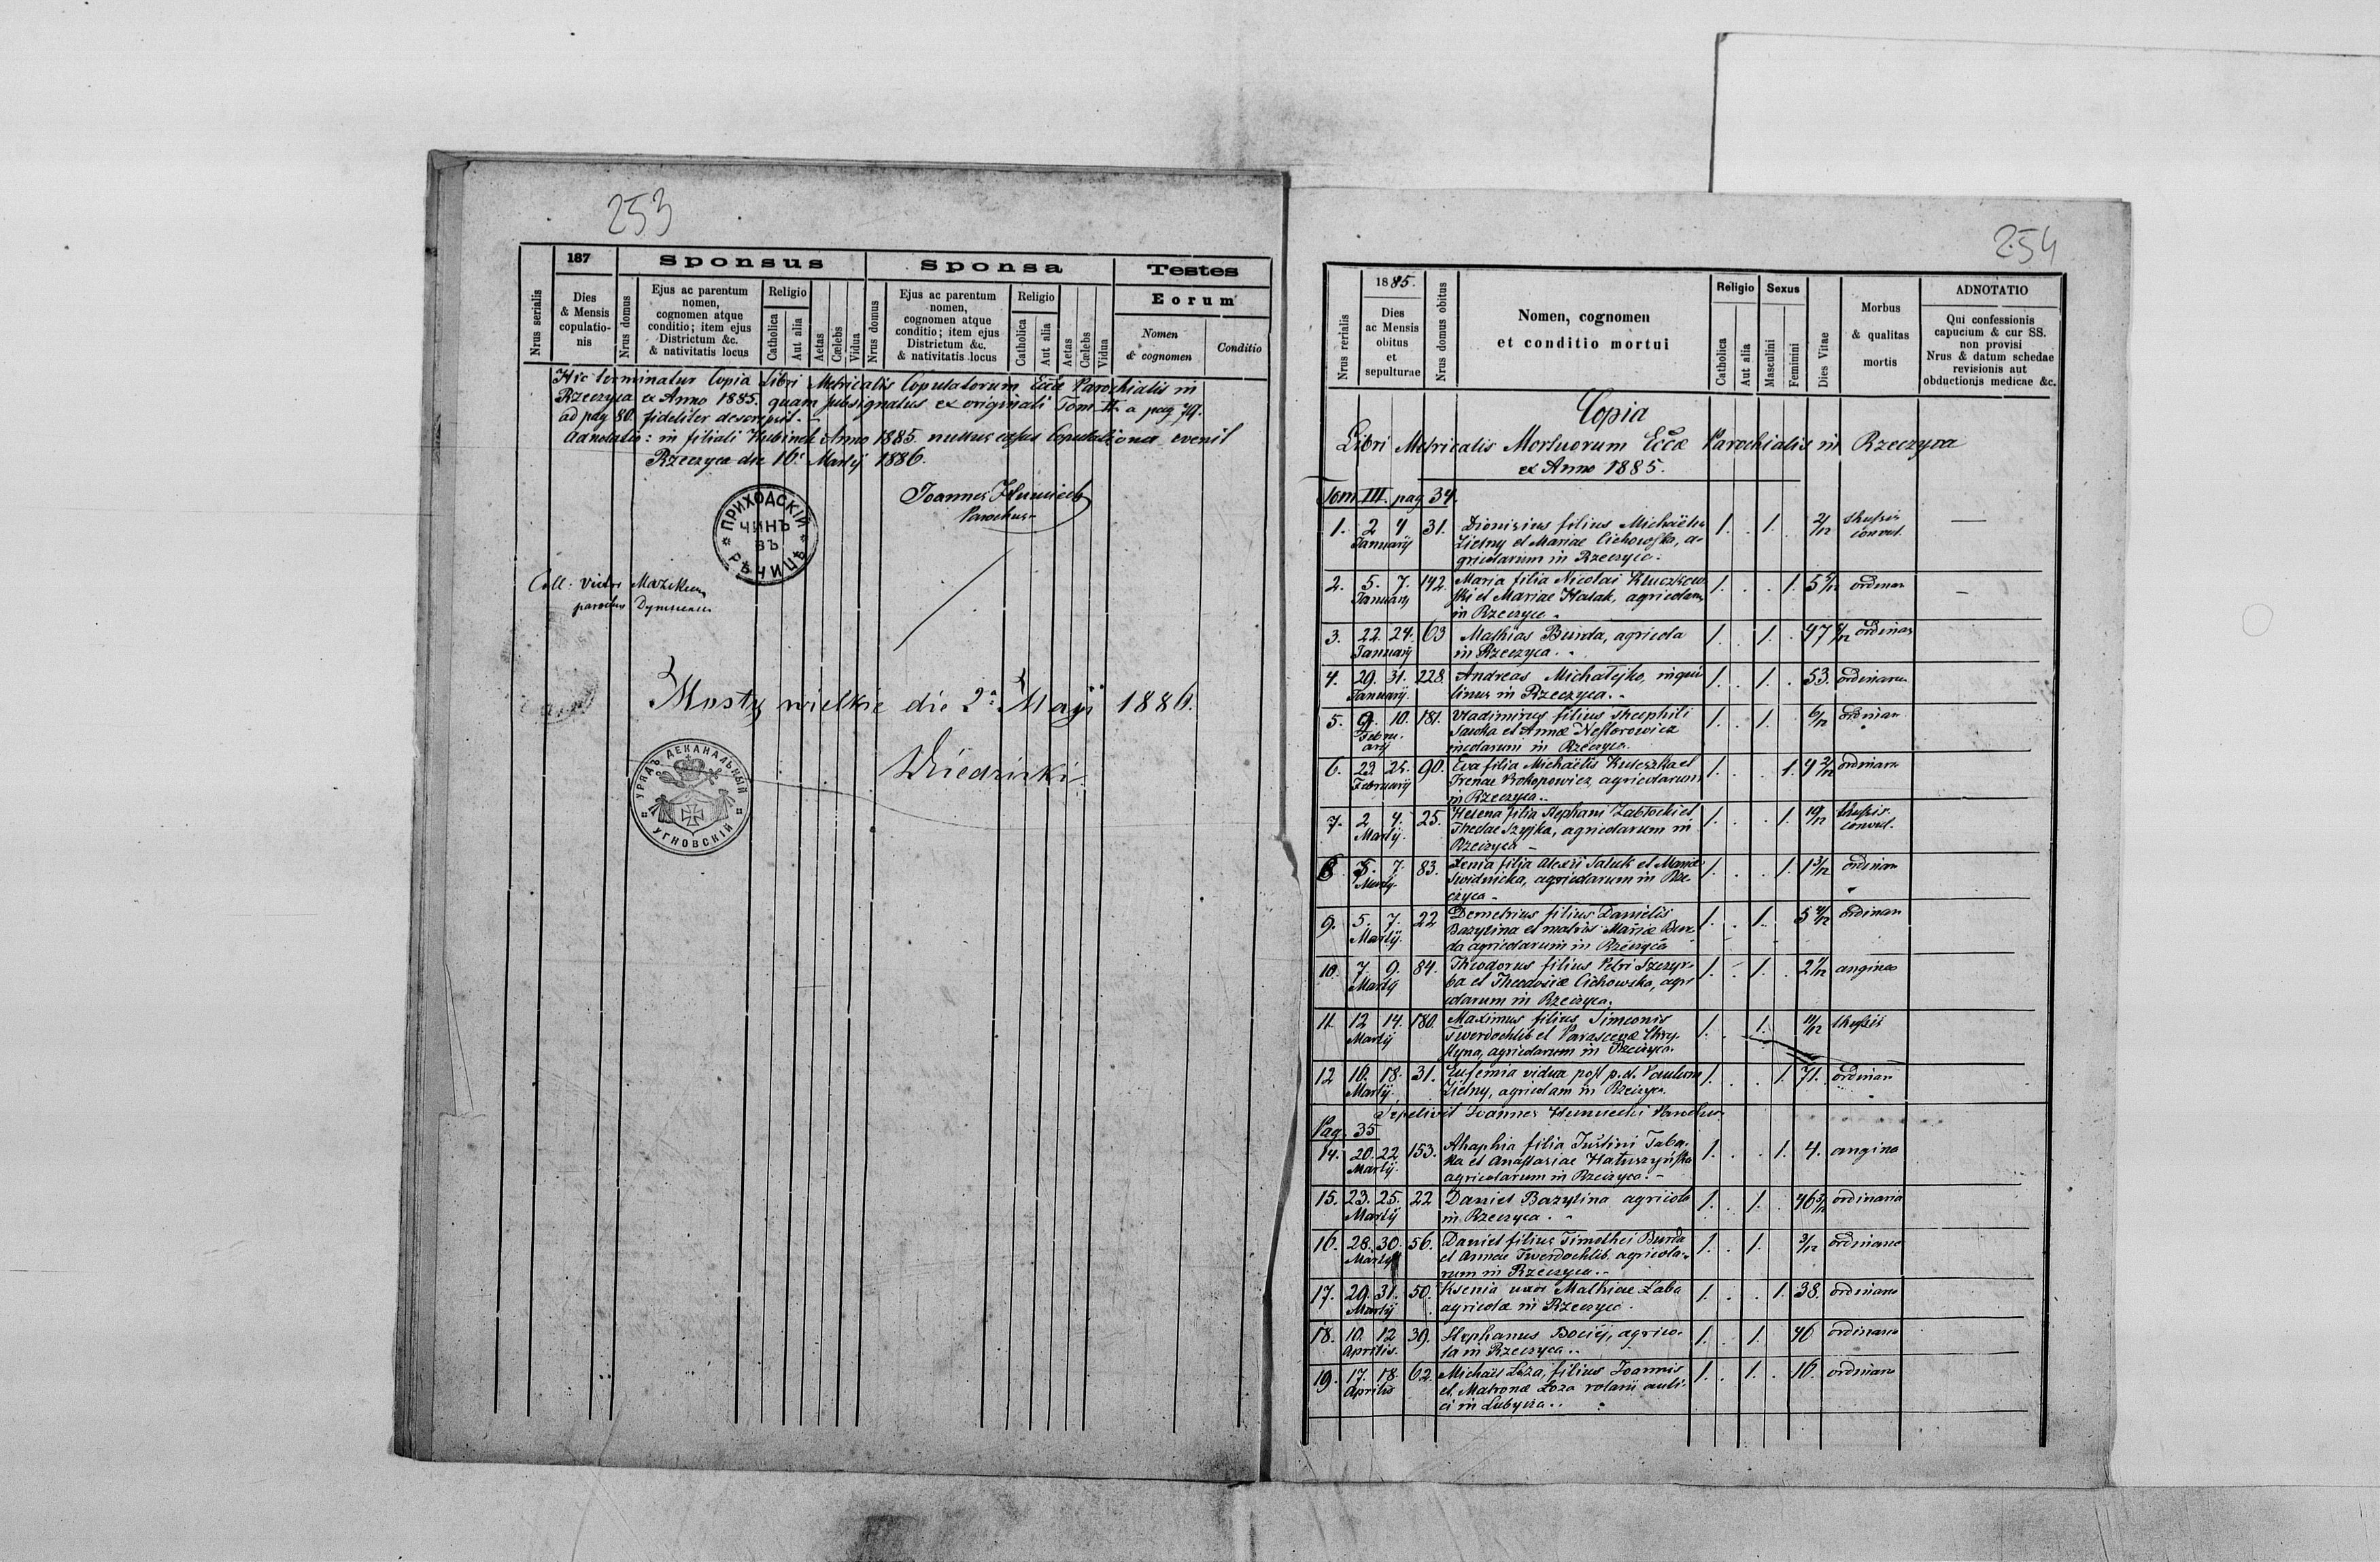 253
187
Sponsus
Sponsa
Testes
Nrus serialis
Dies & Mensis copulatio-nis
Nrus domus
Ejus ac parentum nomen, cognomen atque conditio; item ejus Districtum &c. & nativitatis locus
Religio
Catholica
Aut alia
Aetas
Cœlebs
Vidua
Nrus domus
Ejus ac parentum nomen, cognomen atque conditio; item ejus Districtum &c. & nativitatis locus
Religio
Catholica
Aut alia
Aetas
Cœlebs
Vidua
Eorum
Nomen & cognomen
Conditio
Hic terminatur Copia Libri Metricalis Copulatorum Eccæ Parochialis in
Rzeczyca ex Anno 1885. quam subsignatus ex originali Tom II. a pag 79.
ad pag 80. fideliter descripsit.
Adnotatio: in filiali Hubinek Anno 1885. nullus casus Copulationa evenit
Rzeczyca die 16. Martij 1886.
Joannes
Parochus
ПРИХОДСКІЙ
ЧИНЪ
ВЪ
РѢЧИЦѢ
Coll:
parochus
Mosty wielkie die 2a Maji 1886.
УРЯДЪ ДЕКАНАЛЬНЫЙ
УГНОВСКІЙ
254
1885.
Nrus rerialis
Dies ac Mensis obitus et sepulturae
Nrus domus obitus
Nomen, cognomen
et conditio mortui
Religio
Catholica
Aut alia
Sexus
Masculini
Feminini
Dies Vitae
Morbus
& qualitas
mortis
ADNOTATIO
Qui confessionis
capucium & cur SS.
non provisi
Nrus & datum schedae
revisionis aut
obductionis medicae &c.
Copia
Libri Metricalis Mortuorum Eccæ Parochialis in Rzeczyca
ex Anno 1885.
Tom III. pag 34.
1. 2 4 31. Dionisius filius Michaëlis 1. . 1. 2/12
Januarij Zielny et Mariae Cichowska, a-
gricolarum in Rzeczyca.
2. 5. 7. 142. Maria filia Nicolai 1. . . 1. 5 ordinar
Januarij ski et Mariae Hatak, agricolarum
in Rzeczyca.
3. 22. 24. 63 Mathias Burda, agricola 1. . 1. . 47 ordinar
Januarij in Rzeczyca.
4. 29. 31. 228. Andreas Michałejko, inqui 1. . 1. . 53. ordinaria
Januarij. linus in Rzeczyca.
5. 9. 10. 181. Vladimirus filius Theophili 1. . 1. 6/12 ordinar
Febru- Sawka et Annæ Nestorowicz
arij in Rzeczyca.
6. 23 25. 90. Eva filia Michaëlis 1. . . 1. 4 2/12 ordinara
Februarij Irenae Prokopowicz, agricolarum
in Rzeczyca.
7. 2 4. 25. Helena filia Stephani Zabłocki et 1. . . 1.
Martij. Theclae Szyjka, agricolarum in
Rzeczyca
8. 5. 7. 83. Xenia filia Alexii Saluk et Mariæ 1. . . 1. 1 3/12 ordinar
Martij. Swidnicka, agricolarum in Rze-
czyca
9. 5. 7. 22 Demetrius filius Danielis 1. . 1. . 5 ordinar
Martij. Bazylina et matris Mariæ Bur-
da agricolarum in Rzeczyca
10. 7. 9. 84. Theodorus filius Petri Szczyr- 1. . 1. . 2 angina
Martij ba et Theodosiæ Cichowska, agri
colarum in Rzeczyca.
11. 12 14. 180. Maximus filius Simeonis 1. . 1. 11/12
Martij Twerdochlib et Parascevæ Chry-
styna, agricolarum in Rzeczyca.
12 16. 18. 31. Eufemia vidua post p.d. Paulum 1. . . 1. 71. ordinar
Martij. Zielny, agricolam in Rzeczyca.
Sepelivit Joannes Parochus
Pag. 35
14. 20. 22 153. Ahaphia filia Justini Taba- 1. . . 1. 4. angina
Martij. ka et Anastasiae Hatuszyńska
agricolarum in Rzeczyca.
15. 23. 25. 22 Daniel Bazylina agricola 1. . 1. . 46 ordinaria
Martij in Rzeczyca.
16. 28. 30. 56. Daniel filius Timothei Burda 1. . 1. 3/12 ordinaria
Martij et Annae Twerdochlib. agricola-
rum in Rzeczyca.
17. 29. 31. 50. Ksenia uxor Mathiae Łaba 1. . . 1. 38. ordinaria
Martij agricolæ in Rzeczyca.
18. 10. 12 39. Stephanus Bociej, agrico- 1. . 1. 46 ordinaria
Aprilis. la in Rzeczyca.
19. 17. 18. 62. Michael Łoza, filius Joannis 1. . 1. . 16. ordinaria
Aprilis et Matronæ Łoza rotarii auli-
ci in Lubycza.